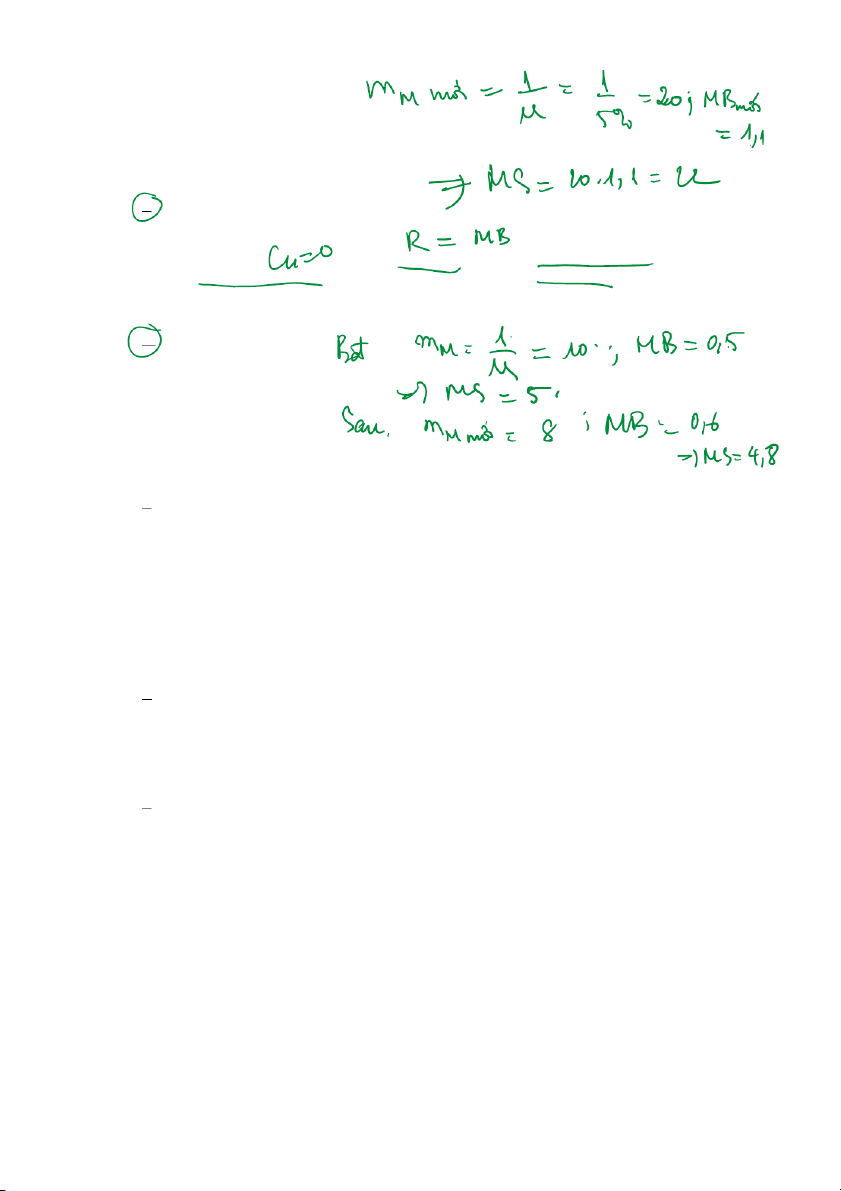 m_M mới = 1/M = 1/5% = 20 ; MB mới
= 1,1
⇒ MS = 20.1,1 = 22
Cu=0 R = MB
Bđ m_M = 1/M = 10 ; MB = 0,5
⇒ MS = 5.
Sau. m_M mới = 8 ; MB = 0,6
⇒ MS = 4,8